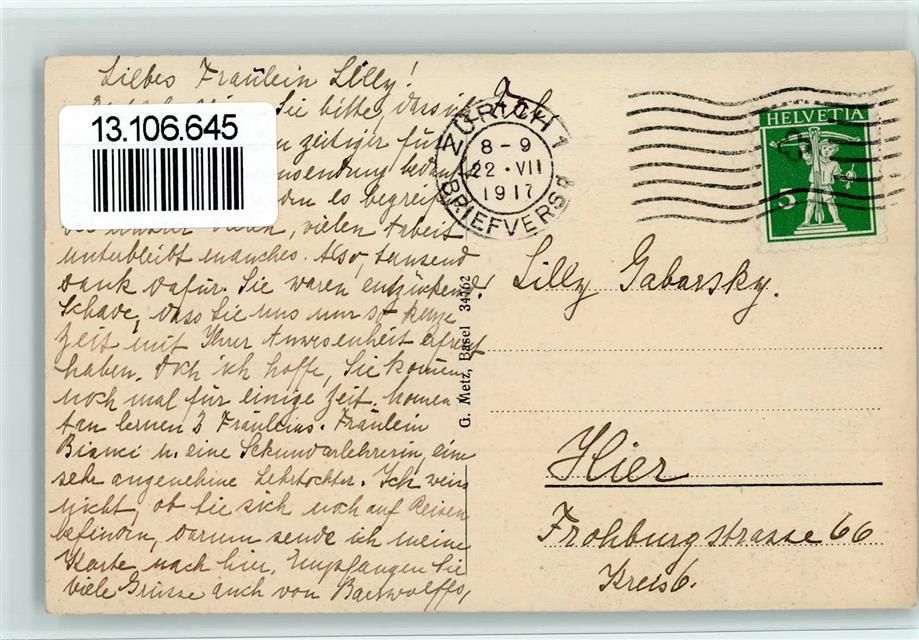 Liebes Fräulein Lilly!
Sie bitte, dass ich
13.106.645
zeitiger für
es begreif
vielen Arbeit
unterbleibt manches. Also, tausend
Dank dafür. Sie waren entzückend!
Schade, dass Sie uns nur so kurze
Zeit mit Ihrer Anwesenheit erfreut
haben. Doch ich hoffe, Sie kommen
noch mal für einige Zeit. Momen
tan lernen 3 Fräuleins. Fräulein
Bianci u. eine Sekundarlehrerin, eine
sehr angenehme Lehrtochter. Ich weiss
nicht, ob Sie sich noch auf Reisen
befinden, darum sende ich meine
Karte nach hier. Empfangen Sie
viele Grüsse auch von Baerwolffs,
G. Metz, Basel 34762
ZÜRICH 1
8-9
22·VII
1917
BRIEFVERSd
HELVETIA
5
Lilly Gabarsky.
Hier
Frohburgstrasse 66
Kreis 6.